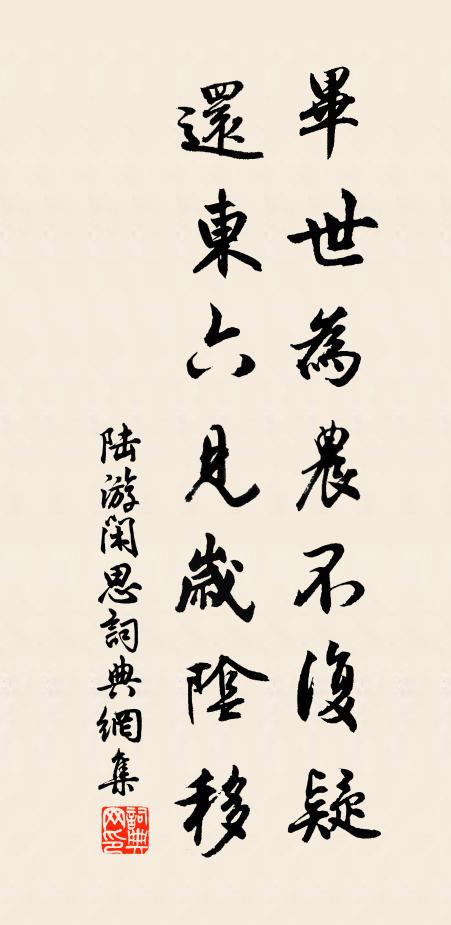 畢世為農不復疑
還東六見歲陰移
陸游閑思詞典網集
詞典网印